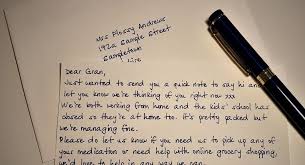 Mrs Flossy Andrews
192a Sample Street
Sampletown
Dear Gran,
Just wanted to send you a quick note to say hi and
let you know we're thinking of you right now xxx
We're both working from home and the kids' school has
closed so they're at home too. it's pretty packed but
we're managing fine.
Please do let us know if you need us to pick up any
of your medication or need help with online grocery shopping,
we'd love to help in any way we can.